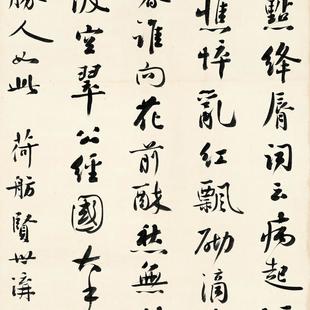 點絳脣詞云病起
憔悴亂紅飄砌滴
春誰向花前醉愁無
波空翠公經國大手
勝人如此 荷舫賢世講